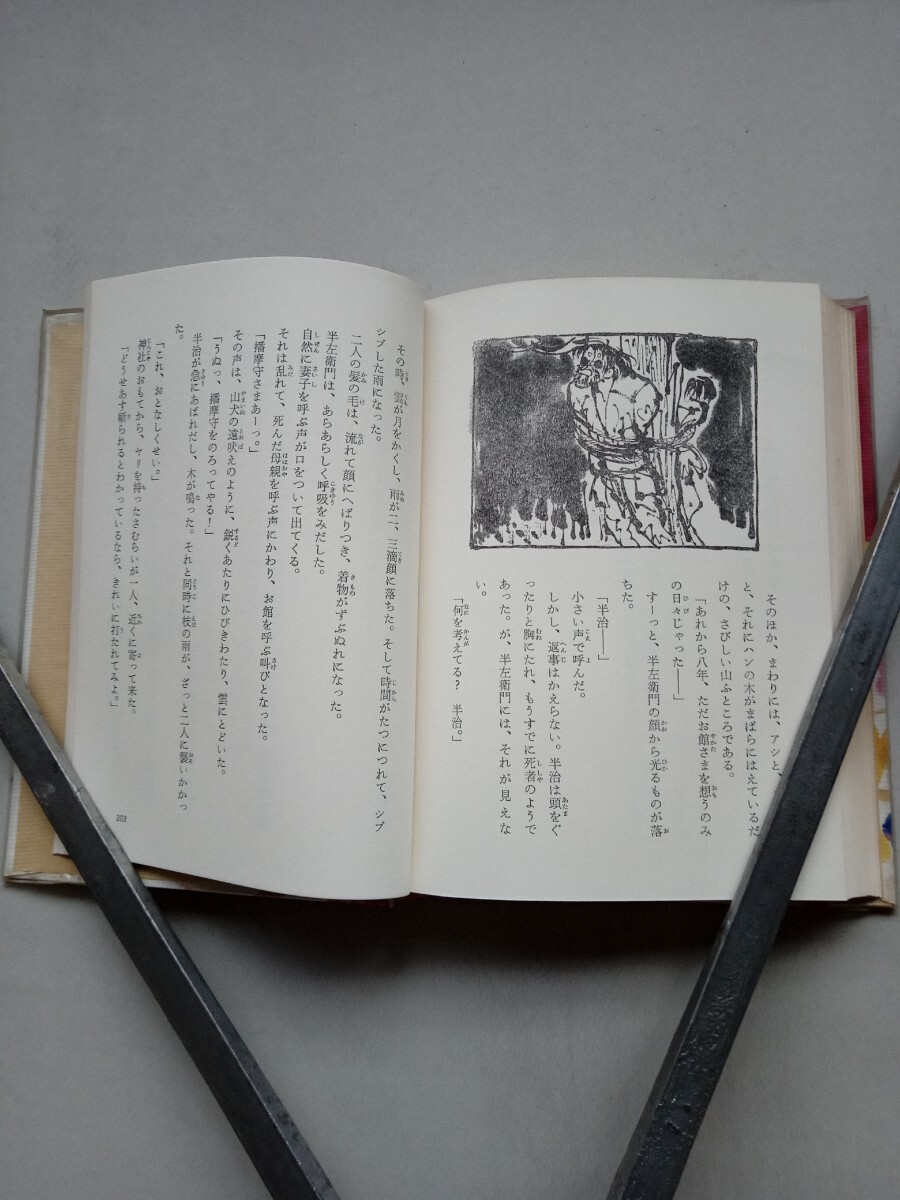 そのほか、まわりには、アシと、
と、それにハンの木がまばらにはえているだ
けの、さびしい山ふところである。
「あれから八年、ただお館さまを想うのみ
の日々じゃった――」
すーっと、半左衛門の顔から光るものが落
ちた。
「半治――」
小さい声で呼んだ。
しかし、返事はかえらない。半治は頭をぐ
ったりと胸にたれ、もうすでに死者のようで
あった。が、半左衛門には、それが見えな
い。
「何を考えてる? 半治。」
その時、雲が月をかくし、雨が二、三滴顔に落ちた。そして時間がたつにつれて、シブ
シブした雨になった。
二人の髪の毛は、流れて顔にへばりつき、着物がずぶぬれになった。
半左衛門は、あらあらしく呼吸をみだした。
自然に妻子を呼ぶ声が口をついて出てくる。
それは乱れて、死んだ母親を呼ぶ声にかわり、お館を呼ぶ叫びとなった。
「播摩守さまあーっ。」
その声は、山犬の遠吠えのように、鋭くあたりにひびきわたり、雲にとどいた。
「うぬっ、播摩守をのろってやる!」
半治が急にあばれだし、木が鳴った。それと同時に枝の雨が、ざっと二人に襲いかかっ
た。
「これ、おとなしくせい。」
神社のおもてから、ヤリを持ったさむらいが一人、近くに寄って来た。
「どうせあす斬られるとわかっているなら、きれいに打たれてみよ。」
203